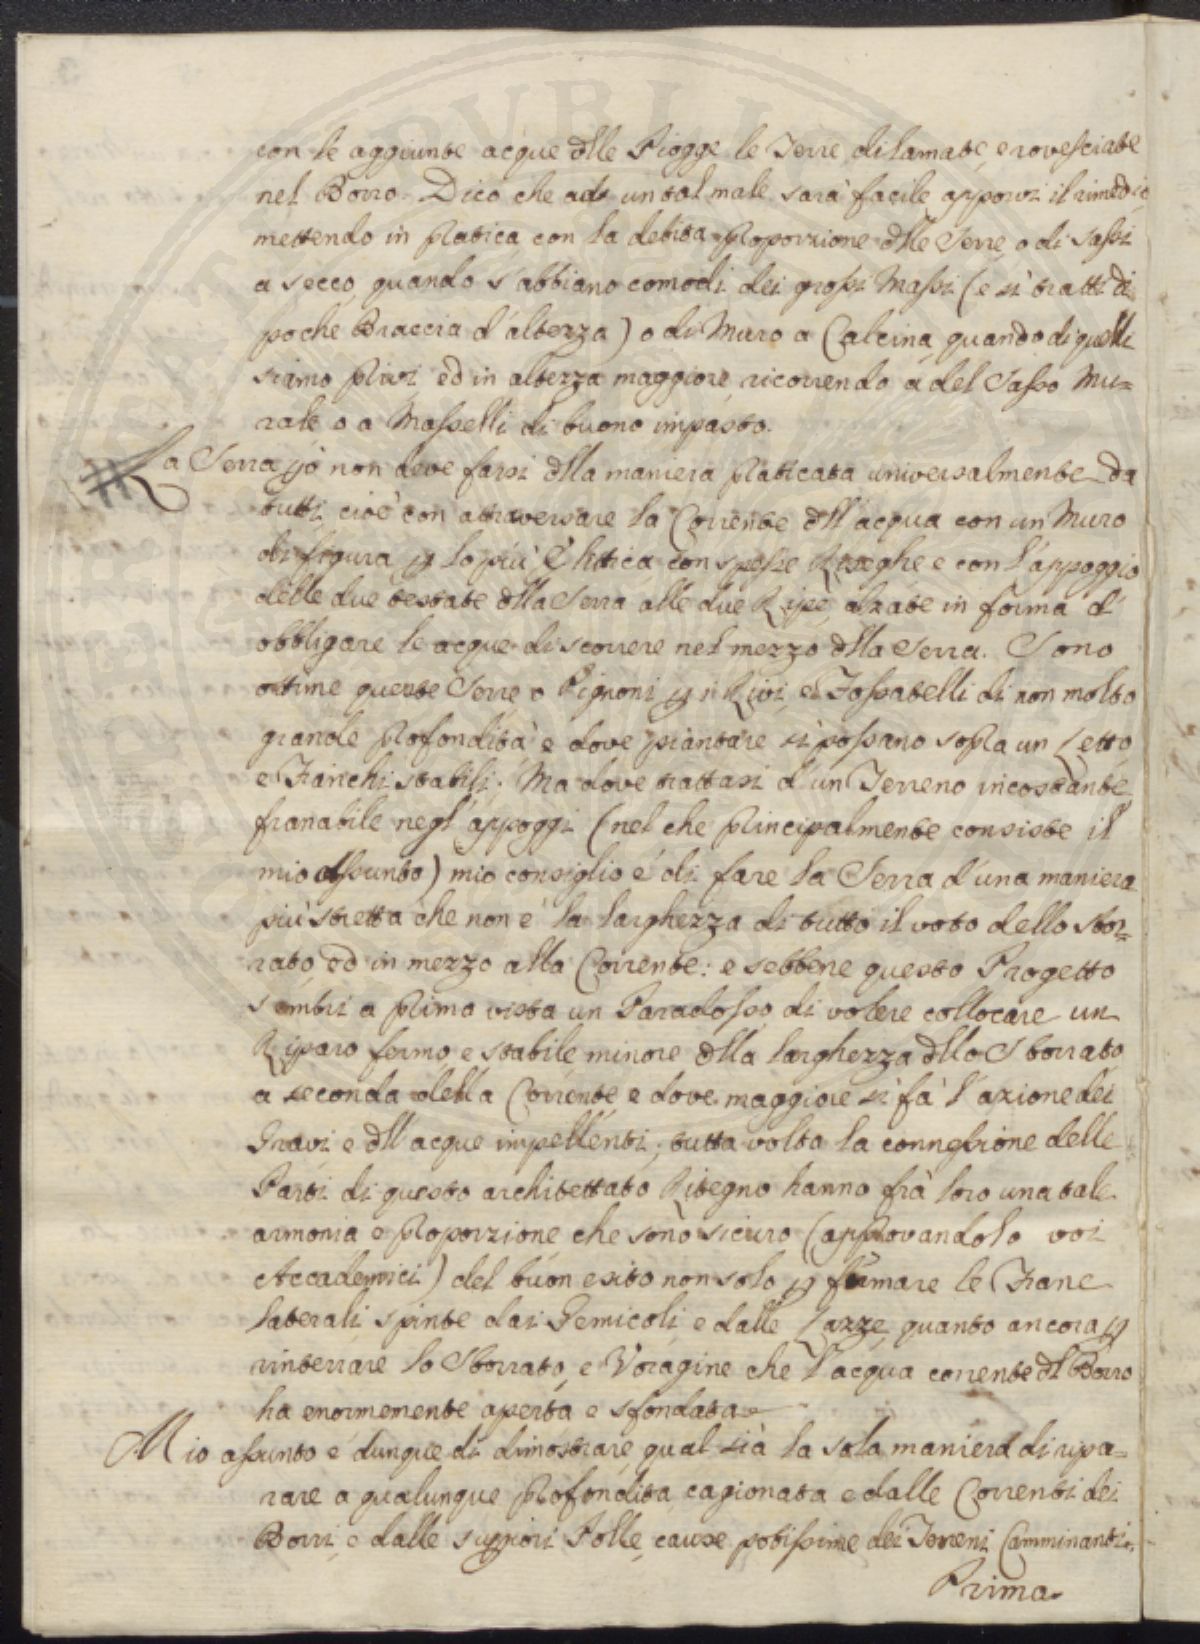 con le aggiunte acque dlle Piogge le Terre dilamate, e rovesciate
nel Borro. Dico che ad un tal male sarà facile apporvi il rimedio
mettendo in platica con la debita proporzione dlle Serre o di Sassi
a secco, quando s'abbiano comodi dei grossi Massi (e si tratti di
poche Braccia d'altezza) o di Muro a Calcina, quando di quelli
siamo privi ed in altezza maggiore ricorrendo a del Sasso Mu=
rale o a Masselli di buono impasto.
La Serra pò non deve farsi dlla maniera platicata universalmente da
tutti cioè con attraversare la Corrente dll'acqua con un Muro
di figura p lo più Elittica con spesse Riseghe e con l'appoggio
delle due testate dlla Serra alle due Ripe, alzate in forma d'
obbligare le acque di scorrere nel mezzo dlla Serra. Sono
ottime queste Serre o Pignoni p i Rivi, e Fossatelli di non molto
grande profondità e dove piantare si possano sopra un Letto
e Fianchi stabili. Ma dove trattasi d'un Terreno incostante
franabile negl'appoggi (nel che principalmente consiste il
mio assunto) mio consiglio è di fare la Serra d'una maniera
più stretta che non è la larghezza di tutto il voto dello sbor=
rato, ed in mezzo alla Corrente: e sebbene questo Progetto
sembri a prima vista un Paradosso, di volere collocare un
Riparo fermo, e stabile, minore dlla larghezza dllo Sborrato
a seconda della Corrente, e dove maggiore si fà l'azione dei
Gravi, e dll'acque impellenti, tutta volta la connessione delle
Parti di questo architettato Ritegno hanno frà loro una tale
armonia e proporzione che sono sicuro (approvandolo voi
Accademici) del buon esito non solo p fermare le Frane
laterali spinte dai Gemicoli, e dalle Lazze, quanto ancora p
rinterrare lo Sborrato, e Voragine che l'acqua corrente dl Borro
ha enormemente aperta e sfondata.
Mio assunto è dunque di dimostrare, qual sià la sola maniera di ripa=
rare a qualunque profondita, cagionata e dalle Correnti dei
Borri, e dalle suppiori Polle, cause potissime dei Terreni Camminanti.
Prima